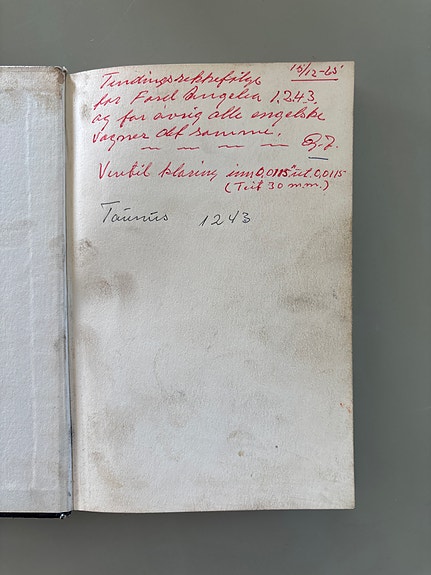 15/12-65
Tendingsrekkefølge
for Ford Angelia 1.2.43.
og for øvrig alle engelske
vogner det samme.
Ventil klaring inn 0,0115" ut. 0,0115
(Teit 30 m.m.)
Taunus 1243